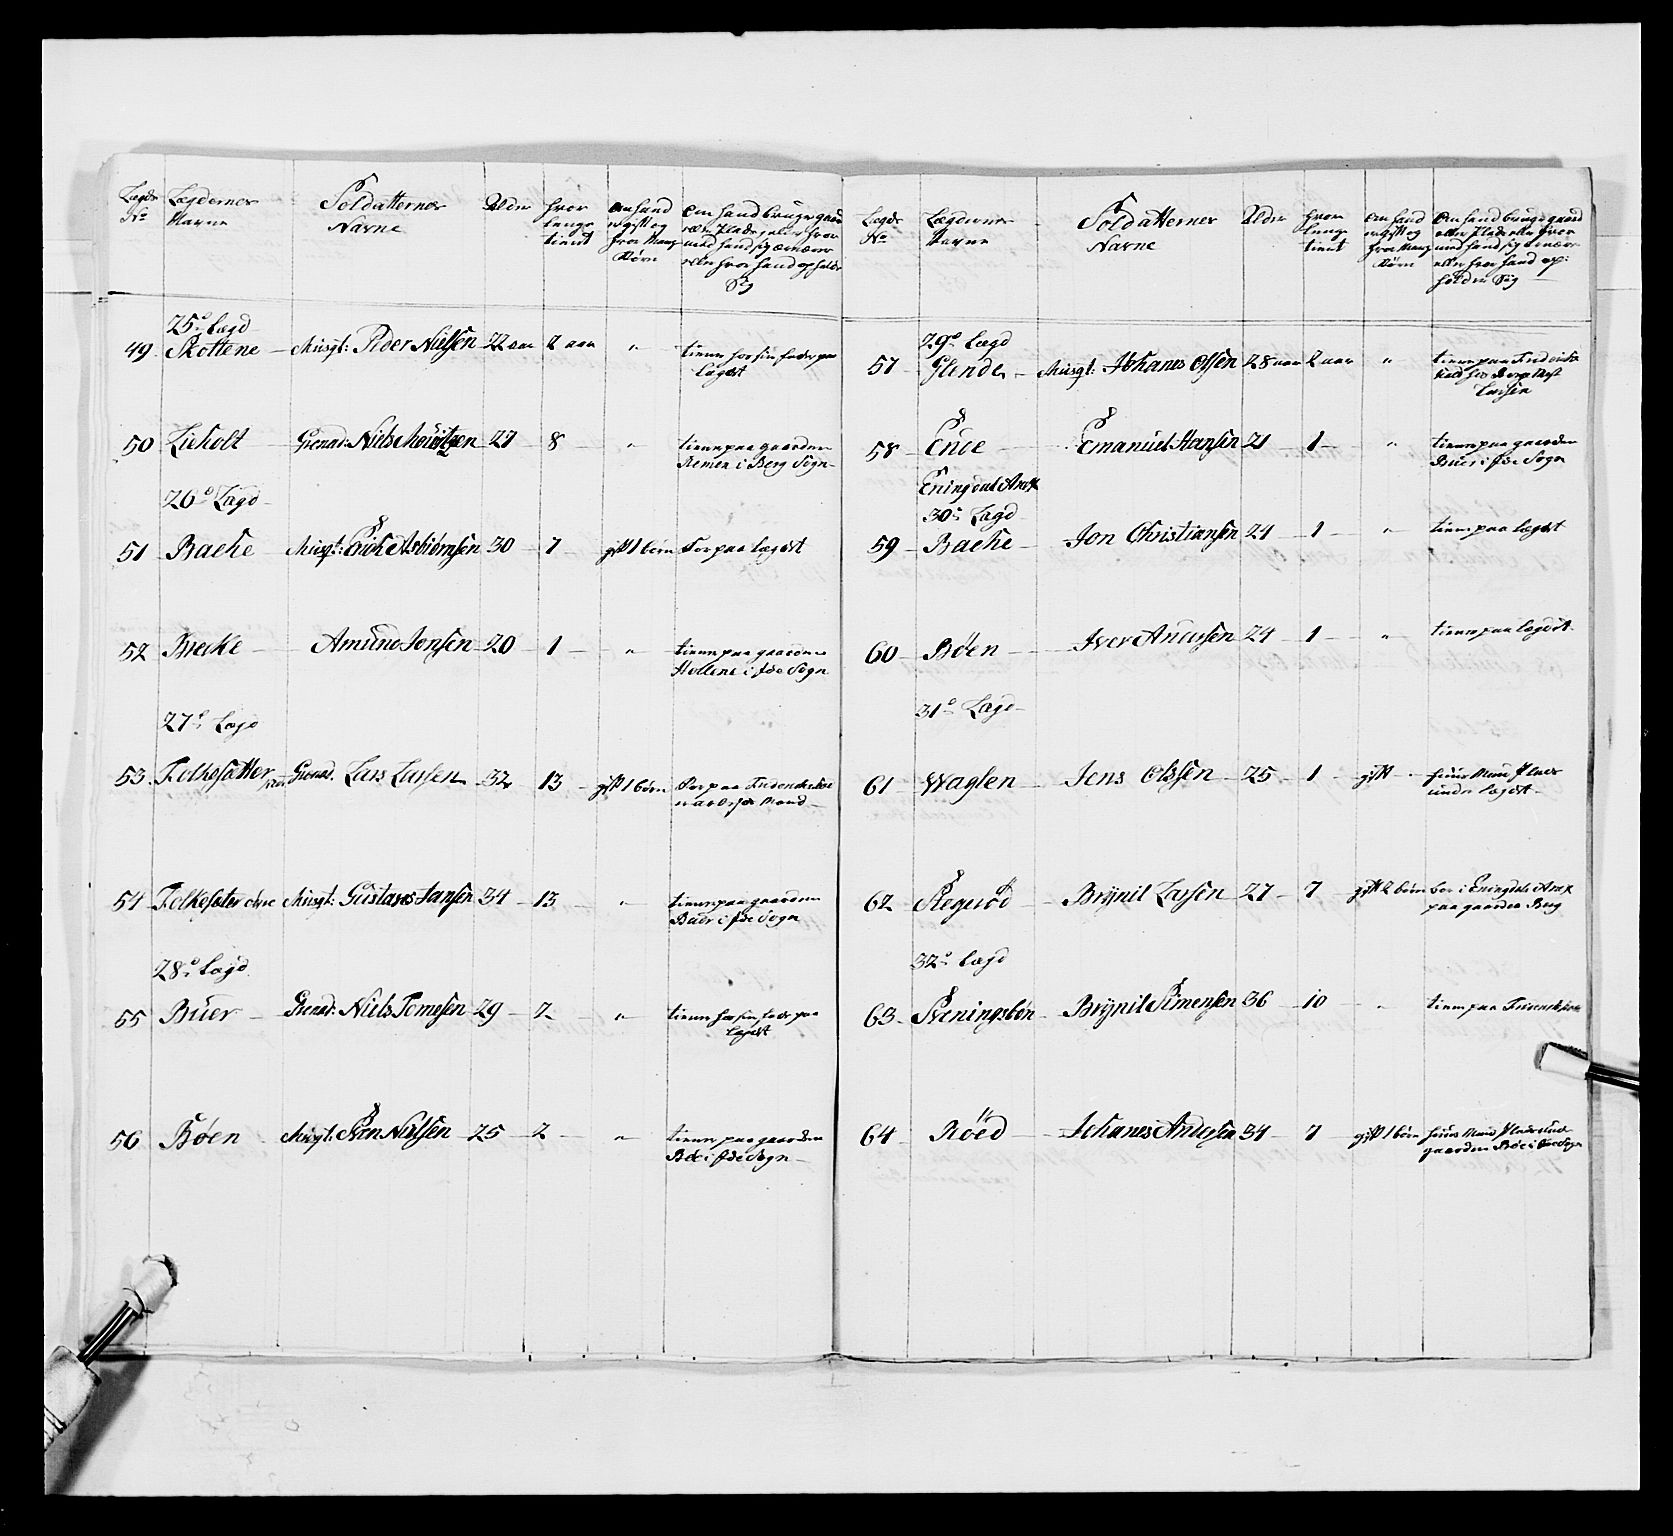 Lægds No | Lægdernes Navne | Soldatternes Navne | Alder | hvor længe tient | om hand er gift og hvor mange Børn | om hand bruger gaard eller Pladz eller hvor med hand sig ernærer eller hvor hand opholder Sig
25de Lægd
49 Skottene Musqt: Peder Nielsen 22 aar 2 aar " tiener hos sin fader paa Lægdet
50 Lieholt Grenad: Niels Mouritzen 27 8 " tiener paa gaarden Remen i Berg Sogn
26de Lægd
51 Bache Musqt: Erich Asbiørnsen 30 7 gift 1 børn Boer paa Lægdet
52 Brecke Amund Jonsen 20 1 " tiener paa gaarden Hollene i Ide Sogn
27de Lægd
53 Folkesætter Grenad. Lars Larsen 32 13 gift 1 børn Boer paa
54 Folkesæter Musqt: Gustav Jansen 34 13 " tiener paa gaarden Buer i Ide Sogn
28de Lægd
55 Buer Grenad: Niels Tomesen 29 2 " tiener hos sin fader paa Lægdet
56 Bøen Musqt: Sven Nielsen 25 2 " tiener paa gaarden Bøe i Ide Sogn
Lægds No | Lægdernes Navne | Soldatternes Navne | Alder | hvor længe tient | om hand er gift og hvor mange Børn | om hand bruger gaard eller Plads eller hvor med hand sig ernærer eller hvor hand opholder Sig
29de Lægd
57 Glende Musqt: Johanes Olsen 28 aar 2 aar " tiener paa Friderichs Hald hos Larsen
58 Ende Emanuel Hansen 21 1 " tiener paa gaarden Buer i Ide Sogn
Eningdals Anex
30te Lægd
59 Bache Jon Christiansen 24 1 " tiener paa Lægdet
60 Bøen Iver Andersen 24 1 " tiener paa Lægdet
31te Lægd
61 Waglen Jens Olssen 25 1 gift huus Mand Plads under Lægdet
62 Brynil Larsen 27 7 gift 2 børn boer i Eningdals Anex paa gaarden Berg
32te Lægd
63 Sveningsbøn Brynil Simensen 36 10 " tiener paa
64 Røed Johanes Andersen 34 7 gift 1 børn huus Mands Plads under gaarden Bøe i Ide Sogn